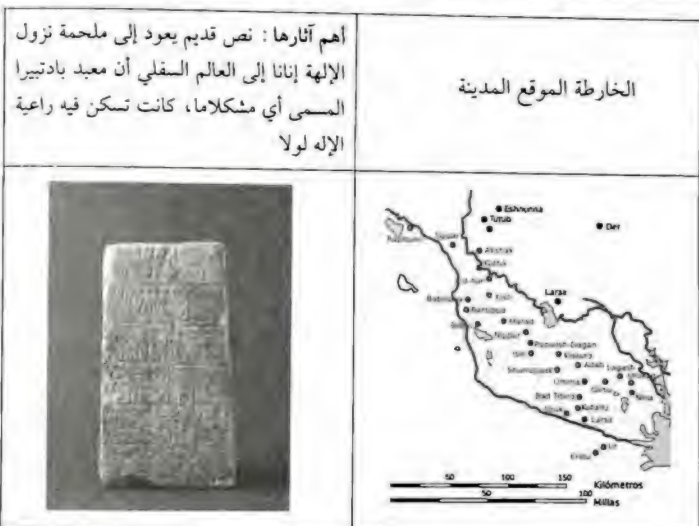 الخارطة الموقع المدينة
أهم آثارها : نص قديم يعود إلى ملحمة نزول
الإلهة إنانا إلى العالم السفلي أن معبد بادتبيرا
المسمى أي مشكلاما، كانت تسكن فيه راعية
الإله لولا
Eshnunna
Tutub
Der
Sippar
Akshak
Kutha
Larsa
Kish
Babilu
Borsippa
Marad
Nippur
Puzreish-Dagan
Isin
Kissura
Shuruppak
Adab
Lagash
Umma
Girsu
Nina
Bad Tibira
Uruk
Kutallu
Larsa
Ur
Eridu
50 100 150
Kilómetros
50 100
Millas